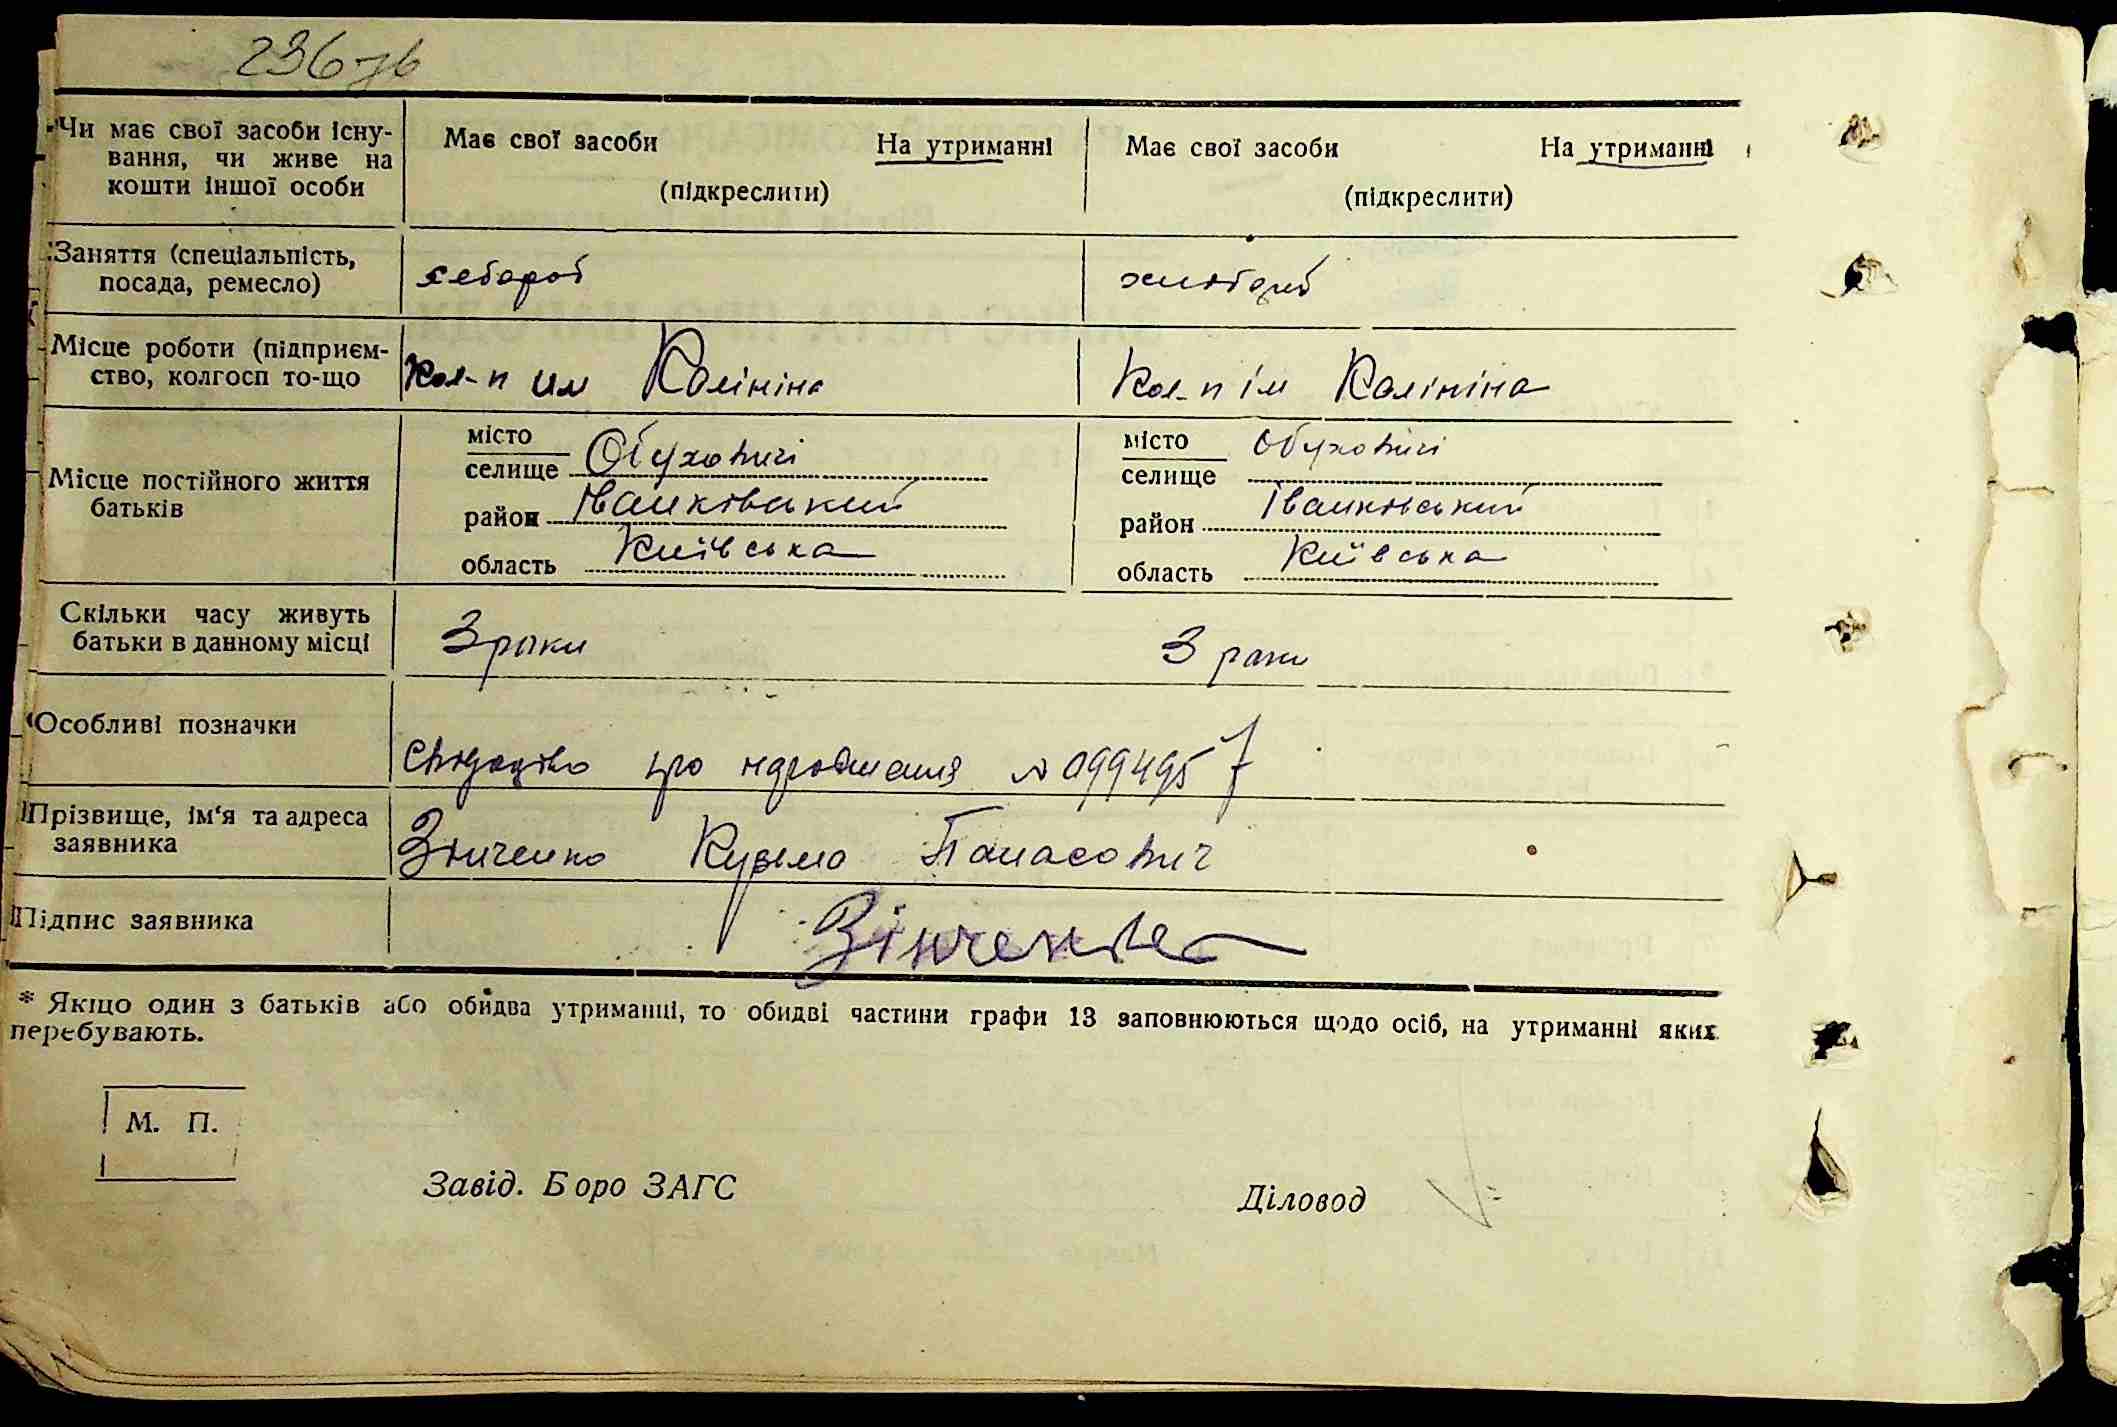 236 зв
Чи має свої засоби існу-
вання, чи живе на
кошти іншої особи
Має свої засоби На утриманні
(підкреслити)
Має свої засоби На утриманні
(підкреслити)
Заняття (спеціальність,
посада, ремесло)
хлебороб
хлібороб
Місце роботи (підприєм-
ство, колгосп то-що
Кол-п им Калініна
Кол-п ім Калініна
Місце постійного життя
батьків
місто
селище Обуховичі
район Іванківський
область Київська
місто Обуховичі
селище
район Іванківський
область Київська
Скільки часу живуть
батьки в данному місці
3 роки
3 роки
Особливі позначки
свідоцтво про народження № 0994957
Прізвище, ім‘я та адреса
заявника
Зінченко Кузьма Панасович
Підпис заявника
Зінченко
* Якщо один з батьків або обидва утриманні, то обидві частини графи 13 заповнюються щодо осіб, на утриманні яких
перебувають.
М. П.
Завід. Бюро ЗАГС
Діловод